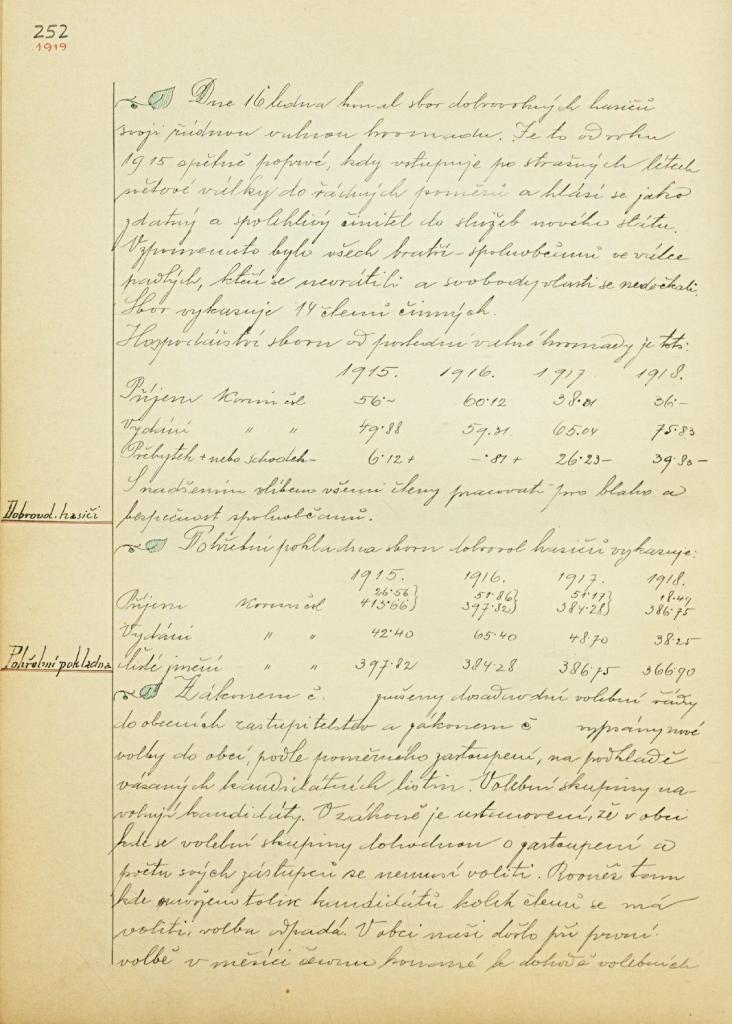 252
1919
Dne 16 ledna konal sbor dobrovolných hasičů
svoji řádnou valnou hromadu. Je to od roku
1915 opětně poprvé, kdy vstupuje po strašných létech
světové války do řádných poměrů a hlásí se jako
zdatný a spolehlivý činitel do služeb nového státu.
Vzpomenuto bylo všech bratří-spoluobčanů ve válce
padlých, kteří se nevrátili a svobody vlasti se nedočkali.
Sbor vykazuje 14 členů činných.
Hospodářství sboru od poslední valné hromady je toto:
1915. 1916. 1917. 1918.
Příjem Korun čsl 56·- 60·12 38·81 36·-
Vydání " " 49·88 59·31 65·04 75·83
Přebytek + nebo schodek- 6·12+ -·81+ 26·23- 39·83-
S nadšením slíbeno všemi členy pracovati pro blaho a
Dobrovol. hasiči
bezpečnost spoluobčanů.
Pohřební pokladna sboru dobrovol hasičů vykazuje:
1915. 1916. 1917. 1918.
26·56} 51·86} 51·17} 18·40
Příjem Korun čsl 413·66} 397·82} 384·28} 386·75
Vydání " " 42·40 65·40 48·70 38·25
Pohřební pokladna
čisté jmění " " 397·82 384·28 386·75 366·90
Zákonem č. zrušeny dosavadní volební řády
do obecních zastupitelstev a zákonem č vypsány nové
volby do obcí, podle poměrného zastoupení, na podkladě
vázaných kandidátních listin. Volební skupiny na-
volují kandidáty. V zákoně je ustanovení, že v obci
kde se volební skupiny dohodnou o zastoupení a
počtu svých zástupců se nemusí voliti. Rovněž tam
kde navrženo tolik kandidátů kolik členů se má
voliti, volba odpadá. V obci naší došlo při první
volbě v měsíci červnu konané k dohodě volebních